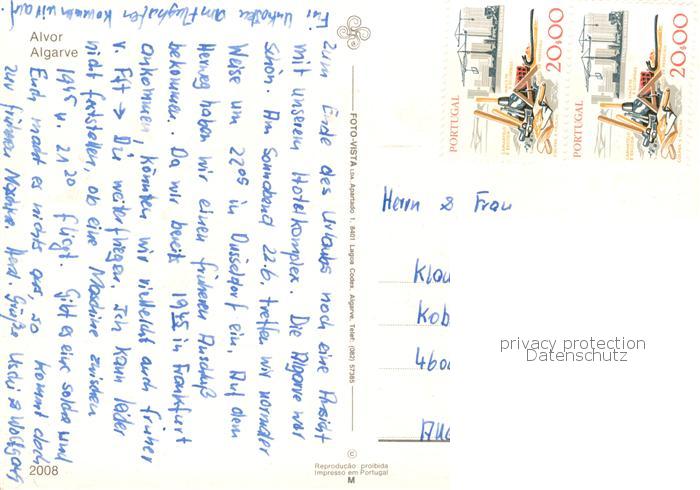 Alvor
Algarve
Zum Ende des Urlaubs noch eine Ansicht
mit unserem Hotelkomplex. Die Algarve war
schön. Am Sonnabend 22.6. treffen wir normaler
Weise um 22⁰⁵ in Düsseldorf ein. Auf dem
Herweg haben wir einen früheren Anschluß
bekommen. Da wir bereits 19⁴⁵ in Frankfurt
ankommen, könnten wir vielleicht auch früher
v. Fft → Dü weiterfliegen. Ich kann leider
nicht feststellen, ob eine Maschine zwischen
19⁴⁵ u. 21²⁰ fliegt. Gibt es eine solche und
Euch macht es nichts aus, so kommt doch
zur früheren Maschine. Herzl. Grüße Uschi & Wolfgang
Für am Flughafen kommen wir auf.
2008
FOTO-VISTA LDA. Apartado 1, 8401 Lagoa Codex, Algarve, Telef: (082) 57385
©
Reprodução proibida
Impresso em Portugal
M
PORTUGAL
20$00
PORTUGAL
20$00
Herrn & Frau
Klau
Kob
460
privacy protection
Datenschutz